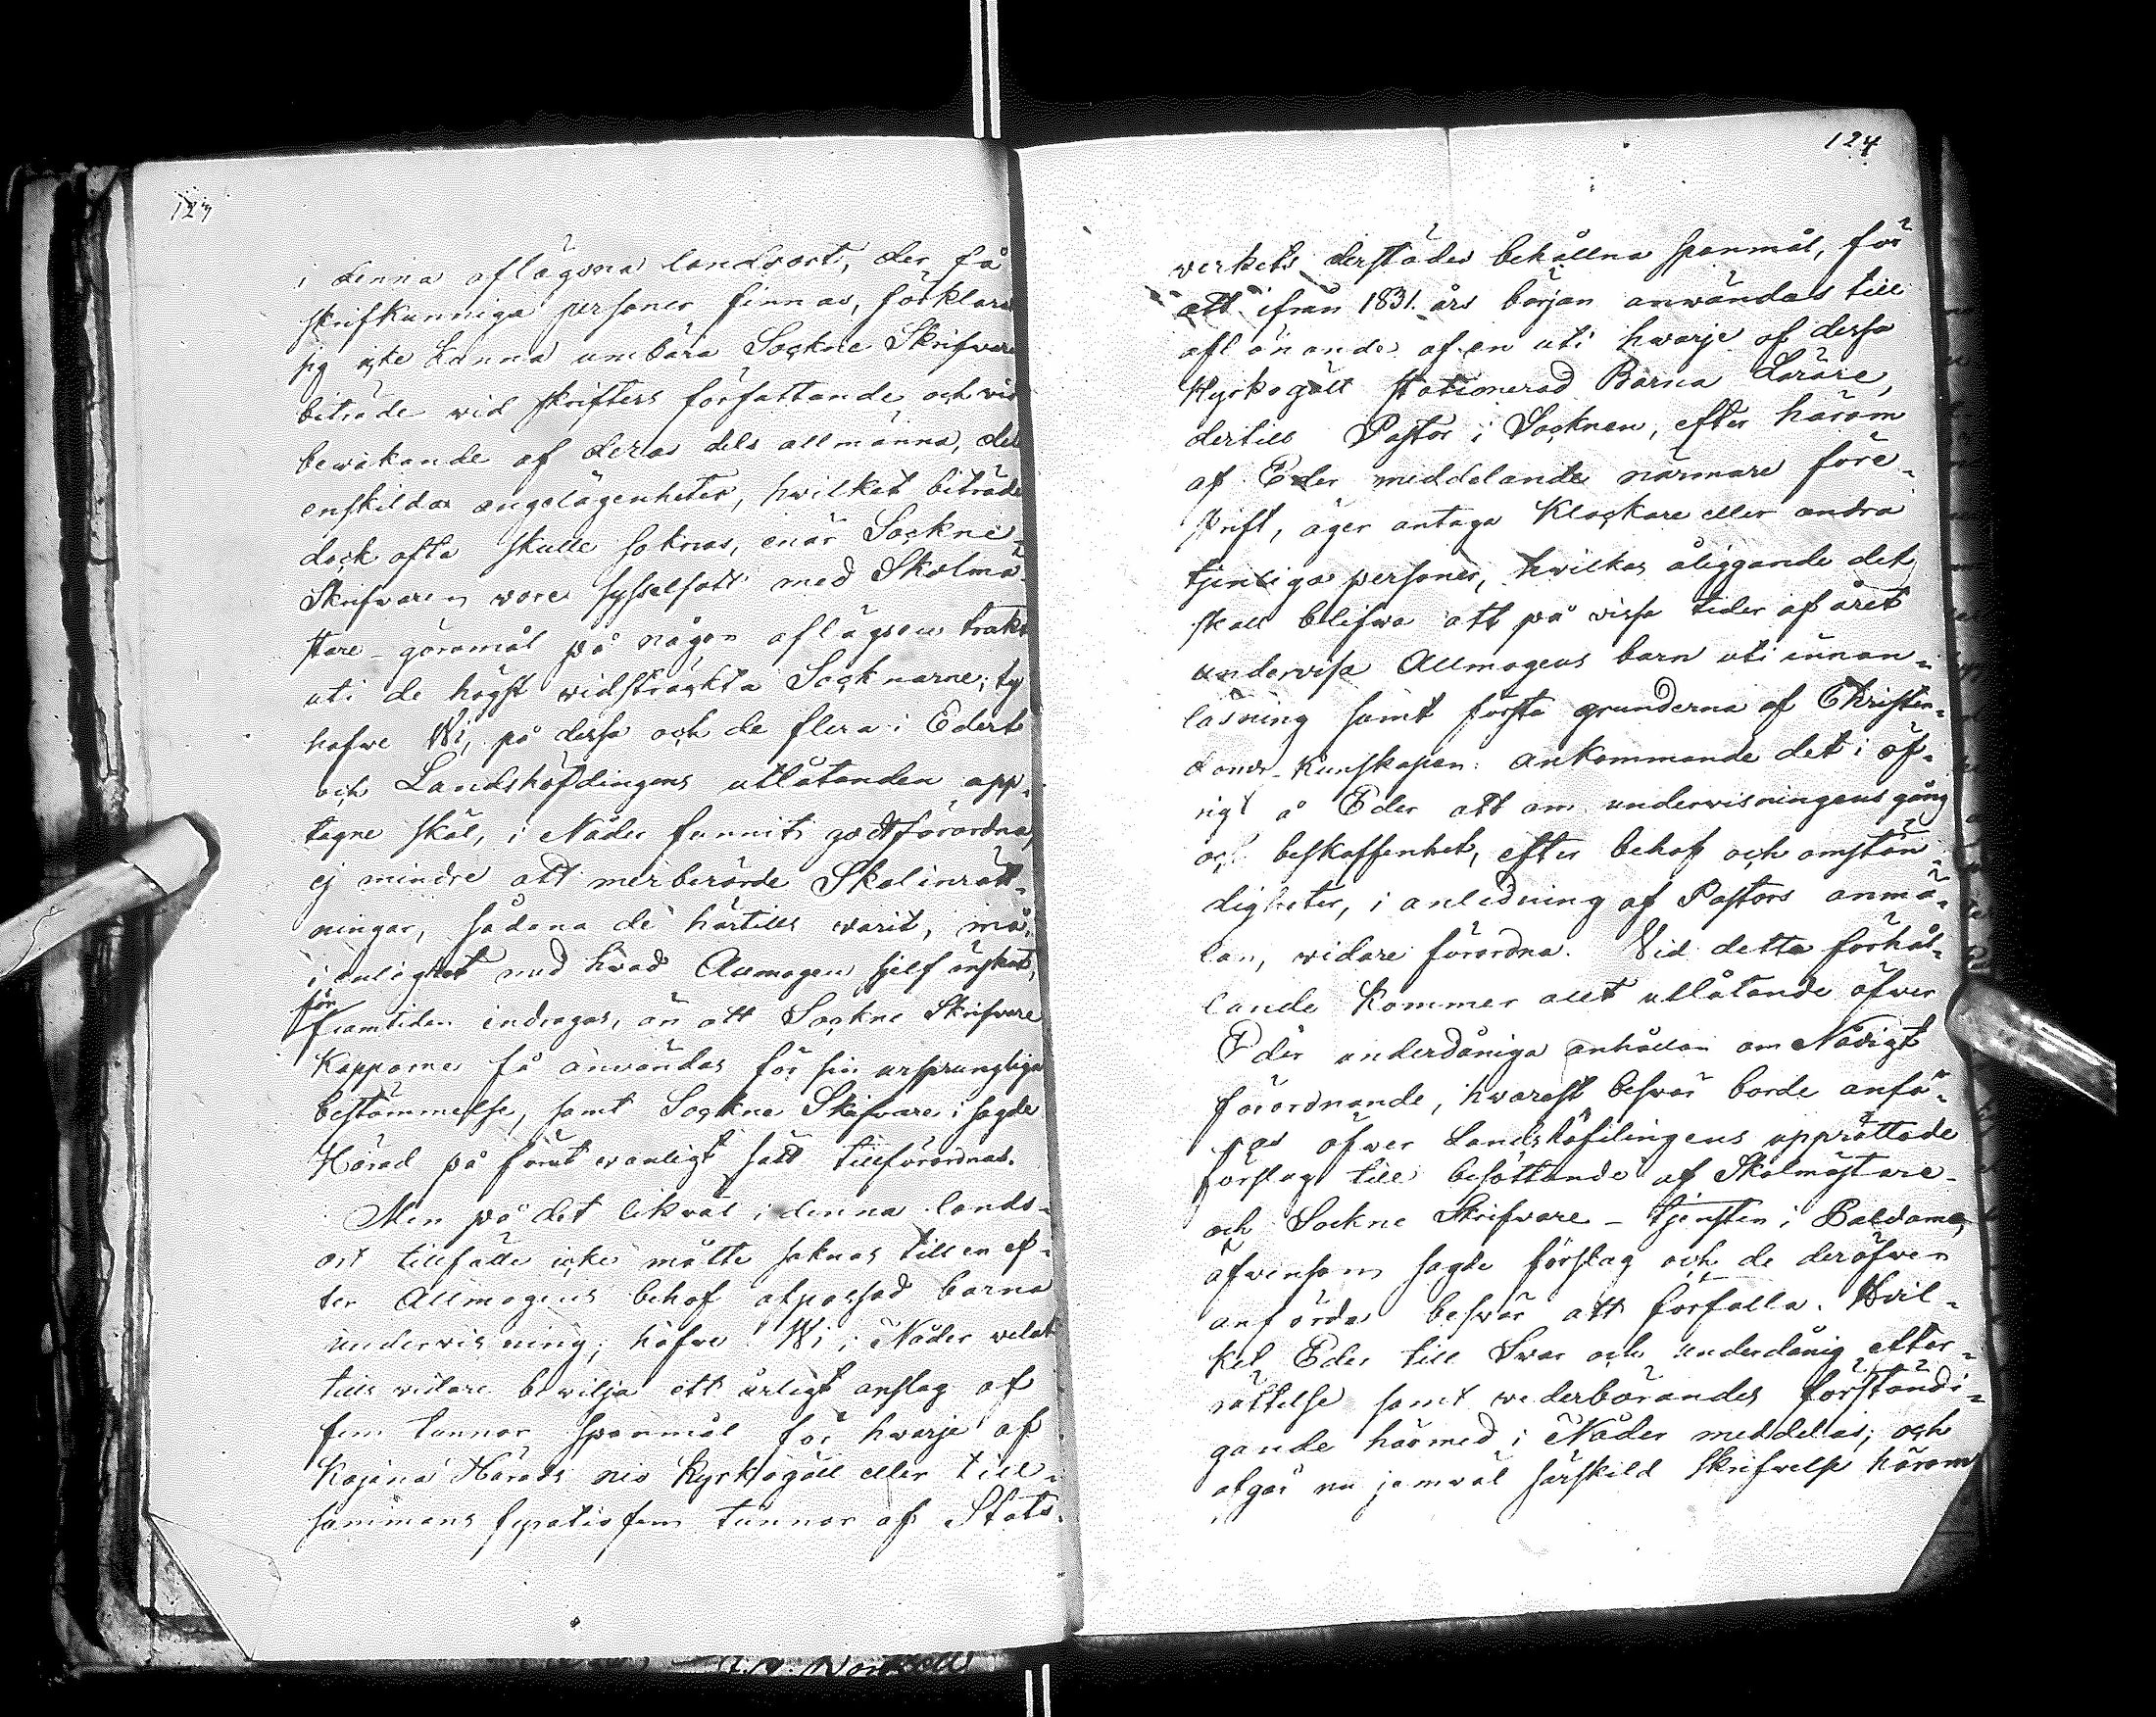 123
i denna aflägsna landsort, der få
skrifkunniga personer finnas, förklara
sig icke kunna umbära Sockne Skrifvare
biträde vid skrifters författande och vid
bewakande af deras dels allmänna, dels
enskilda angelägenheter, hvilket biträde
dock ofta skulle saknas, enär Sockne-
Skrifvaren vore sysselsatt med Skolmä-
stare-göromål på någon aflägsen trakt
uti de högst vidsträckta Socknarne; ty
hafve Wi, på dessa och de flera i Edert
och Landshöfdingens utlåtanden upp-
tagne skäl, i Nåder funnit godt förordna,
ej mindre att merberörde Skolinrätt-
ningar, sådana de härtills varit, må,
i enlighet med hvad Allmogen sjelf önskat,
för
framtiden indragas, än att Sockne Skrifvare
Kapporne få användas för sin ursprungliga
bestämmelse, samt Sockne Skrifvare i sagde
Härad på förut vanligt sätt tillförordnas.
Men på det likväl i denna lands-
ort tillfälle icke måtte saknas till en ef-
ter Allmogens behof afpassad barna
undervisning; hafve Wi i Nåder velat
tills vidare bevilja ett årligt anslag af
fem tunnor spanmål för hvarje af
Kajana Härads nio Kyrkogäll eller till-
sammans fyratiofem tunnor af Stats-
124
verkets derstädes behållna spanmål, för
att ifrån 1831. års början användas till
aflönande af en uti hvarje af dessa
Kyrkogäll stationerad Barna Lärare,
dertill Pastor i Socknen, efter härom
af Eder meddelande närmare före-
skrift, äger antaga Klockare eller andra
tjenliga personer, hvilkas åliggande det
skall blifwa att på vissa tider af året
undervisa Allmogens barn uti innan-
läsning samt första grunderna af Christen-
doms-Kunskapen: ankommande det i öf-
rigt å Eder att om undervisningens gång
och beskaffenhet, efter behof och omstän-
digheter, i anledning af Pastors anmä-
lan, vidare förordna. Vid detta förhål-
lande kommer allt utlåtande öfver
Eder underdåniga anhållan om Nådigt
förordnande, hvarest besvär borde anfö-
ras öfver Landshöfdingens upprättade
förslag till besättande af Skolmästare-
och Sockne Skrifvare-tjensten i Paldamo,
äfvensom sagde förslag och de deröfver
anförda besvär att förfalla. Hvil-
ket Eder till Svar och underdånig efter-
rättelse samt vederbörandes förständi-
gande härmed i Nåder meddelas; och
afgår nu jemväl särskild skrifvelse härom